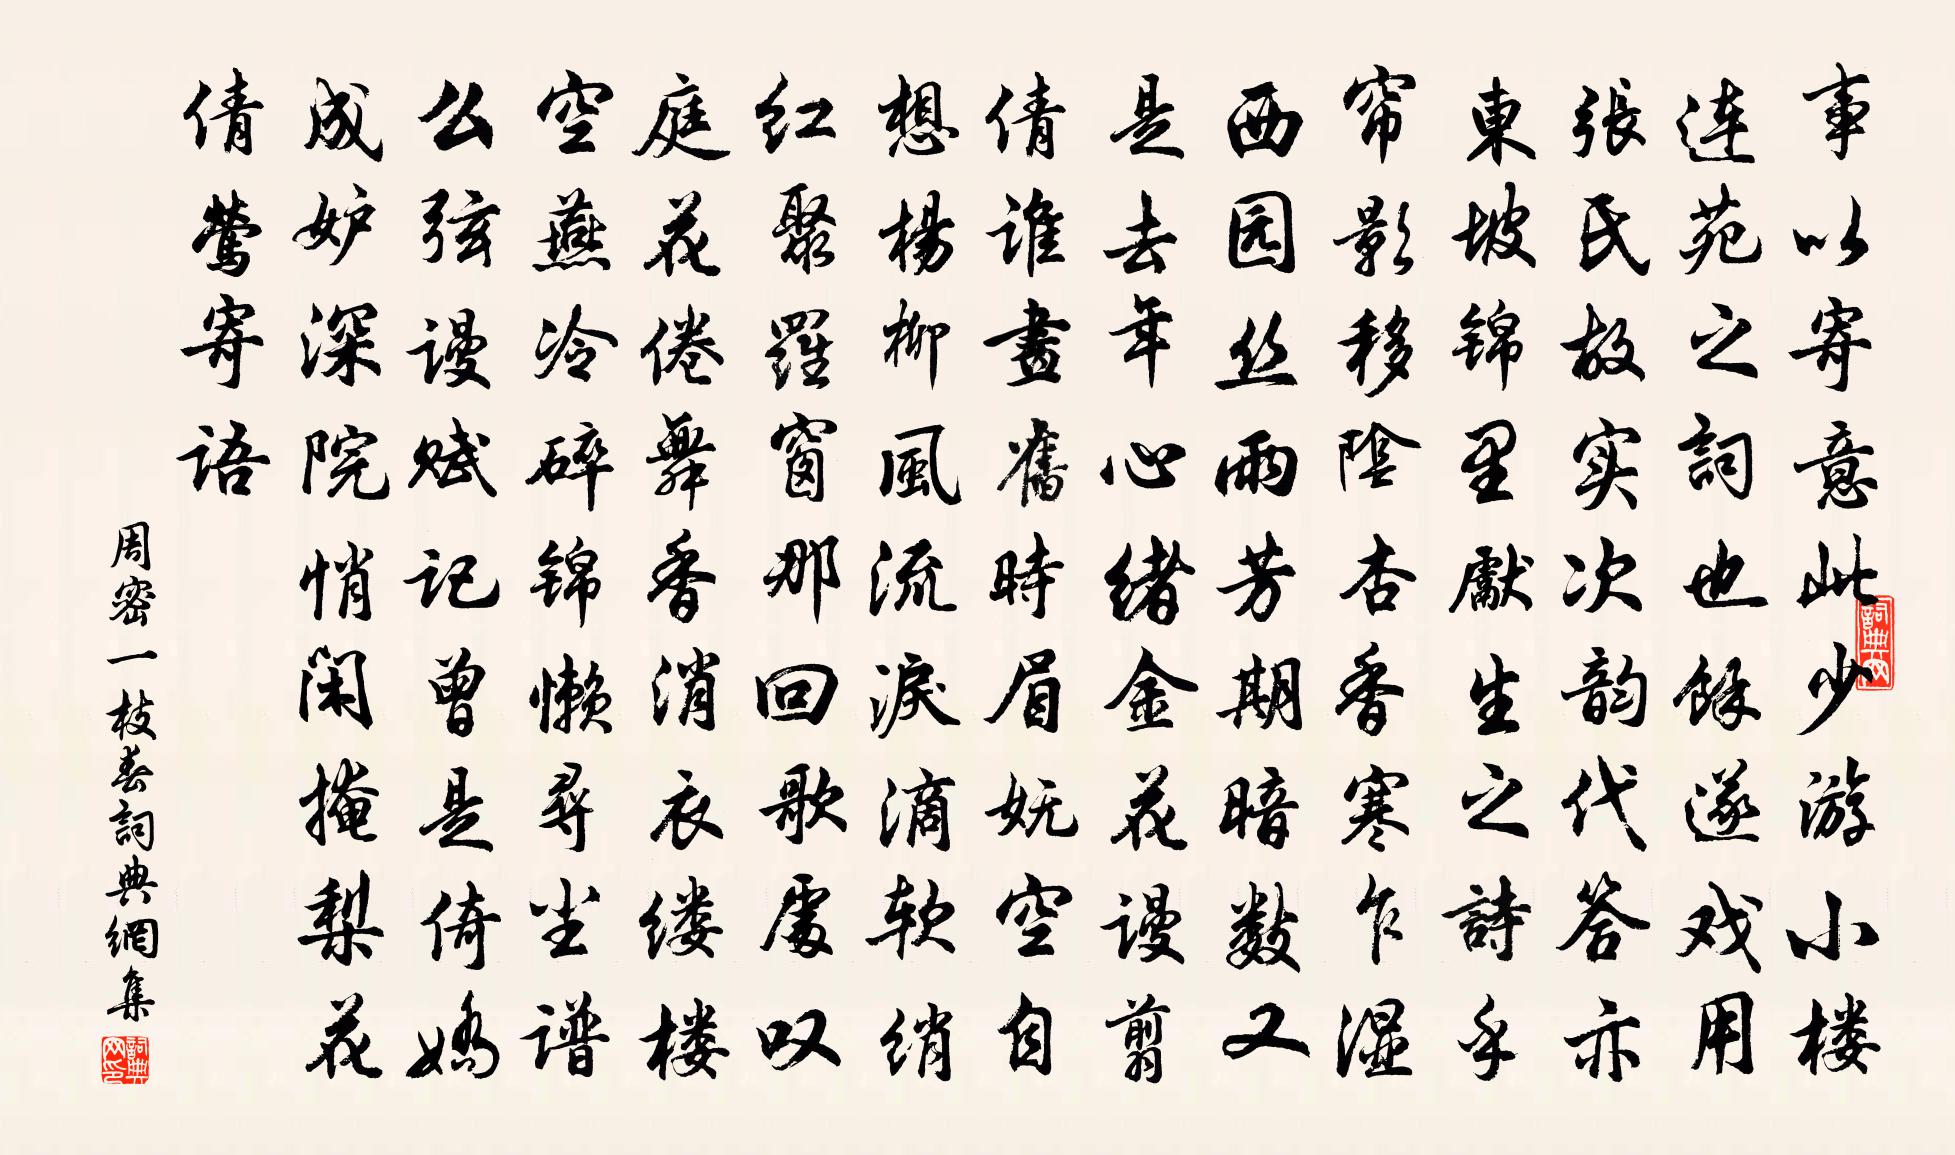 事以寄意此少游小楼
连苑之詞也餘遂戏用
張氏故实次韵代答亦
東坡锦里獻生之詩乎
帘影移陰杏香寒乍湿
西园丝雨芳期暗数又
是去年心绪金花谩剪
倩谁畫舊時眉妩空自
想楊柳風流淚滴软绡
红聚羅窗那回歌處叹
庭花倦舞香消衣缕楼
空燕冷碎锦懒尋尘谱
么弦谩赋记曾是倚嬌
成妒深院悄闲掩梨花
倩莺寄语
周密一枝春詞典網集
詞典网
詞典网印